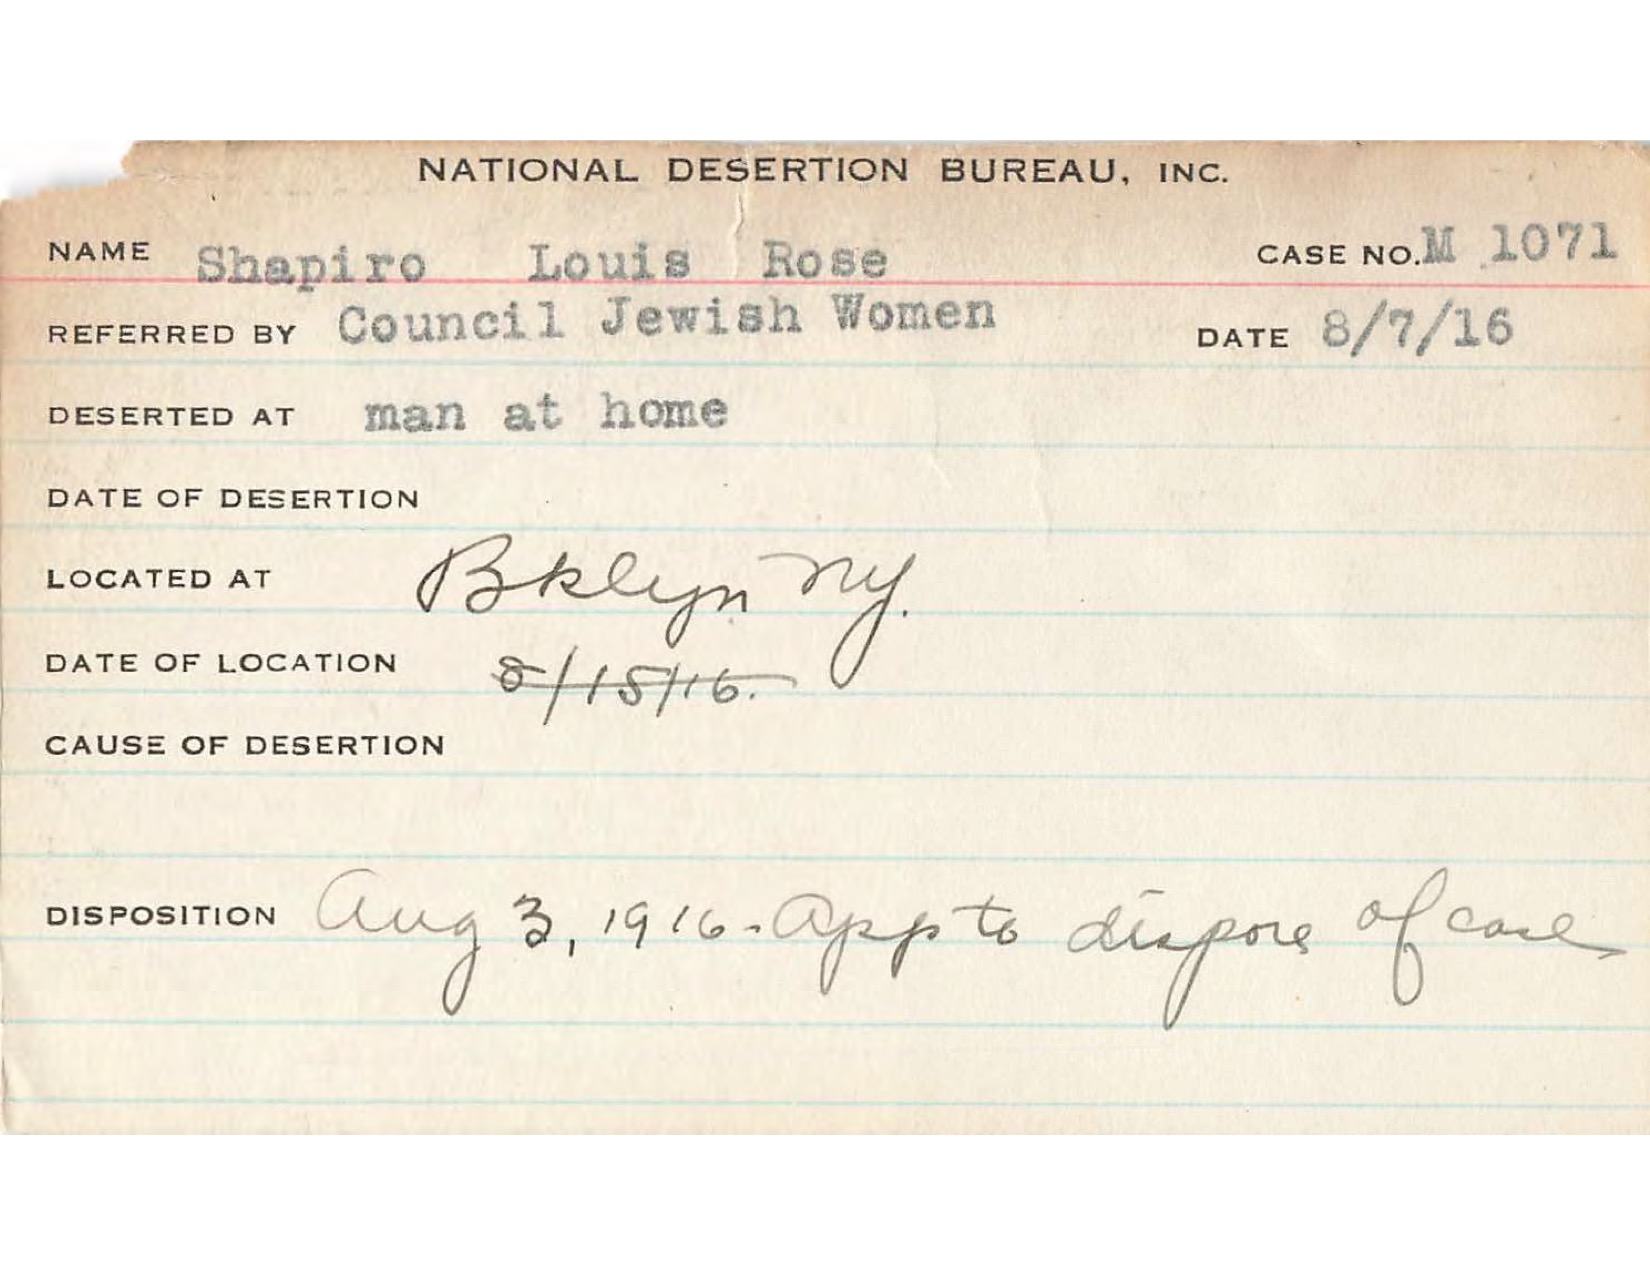 NATIONAL DESERTION BUREAU, INC.
NAME Shapiro Louis Rose CASE NO. M 1071
REFERRED BY Council Jewish Women DATE 8/7/16
DESERTED AT man at home
DATE OF DESERTION
LOCATED AT Bklyn NY.
DATE OF LOCATION 8/15/16.
CAUSE OF DESERTION
DISPOSITION Aug 3, 1916 - App to dispose of case